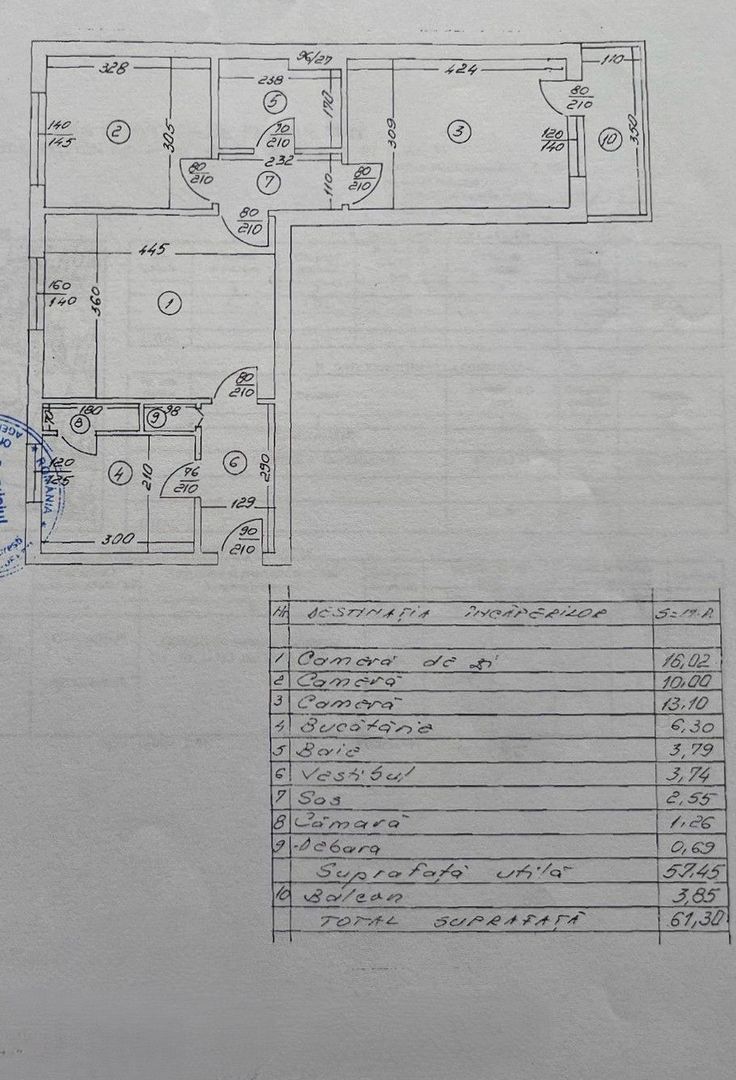 328
96/27
424
110
238
140
145
2
305
5
170
309
3
80
210
120
140
10
350
90
210
232
80
210
7
110
80
210
80
210
445
160
140
360
1
80
210
70
180
8
9
98
120
125
4
210
76
210
6
290
300
129
90
210
ROMÂNIA
Nr DESTINAȚIA ÎNCĂPERILOR S=M.P.
1 Cameră de zi 16,02
2 Cameră 10,00
3 Cameră 13,10
4 Bucătărie 6,30
5 Baie 3,79
6 Vestibul 3,74
7 Sas 2,55
8 Cămară 1,26
9 Debara 0,69
Suprafață utilă 57.45
10 Balcon 3,85
TOTAL SUPRAFAȚĂ 61,30